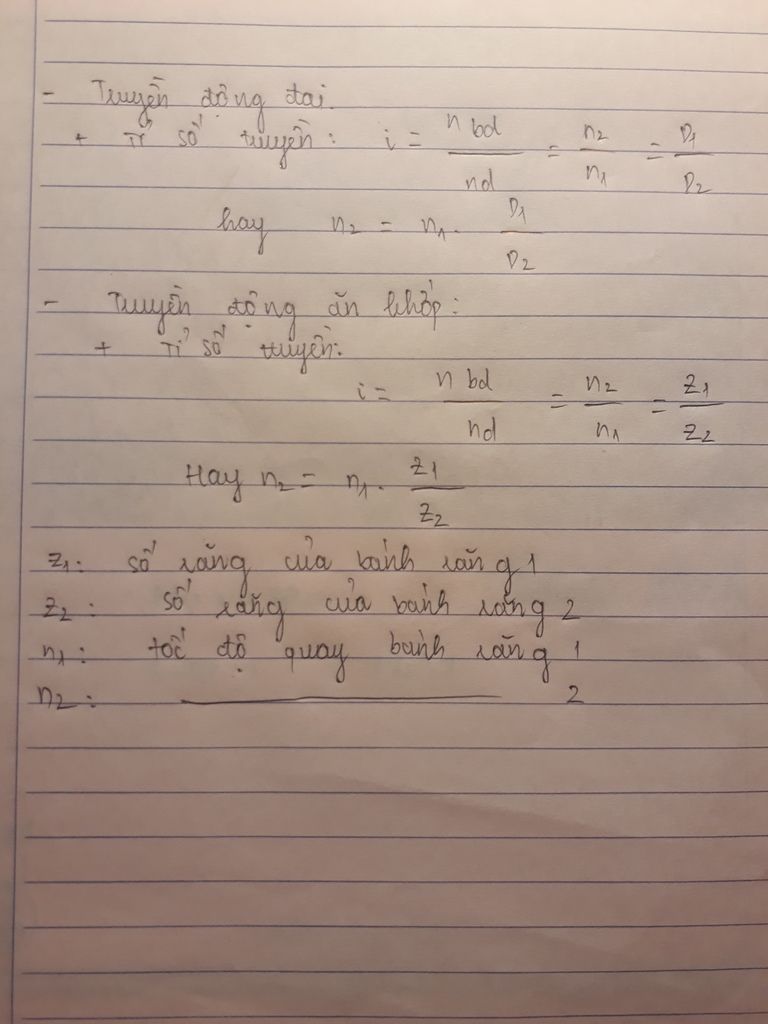 - Truyền động đai.
+ Tỉ số truyền: i = n bd / nd = n₂ / n₁ = D₁ / D₂
hay n₂ = n₁. D₁ / D₂
- Truyền động ăn khớp:
+ Tỉ số truyền:
i = n bd / nd = n₂ / n₁ = Z₁ / Z₂
Hay n₂ = n₁. Z₁ / Z₂
Z₁: số răng của bánh răng 1
Z₂: số răng của bánh răng 2
n₁: tốc độ quay bánh răng 1
n₂: ——————— 2